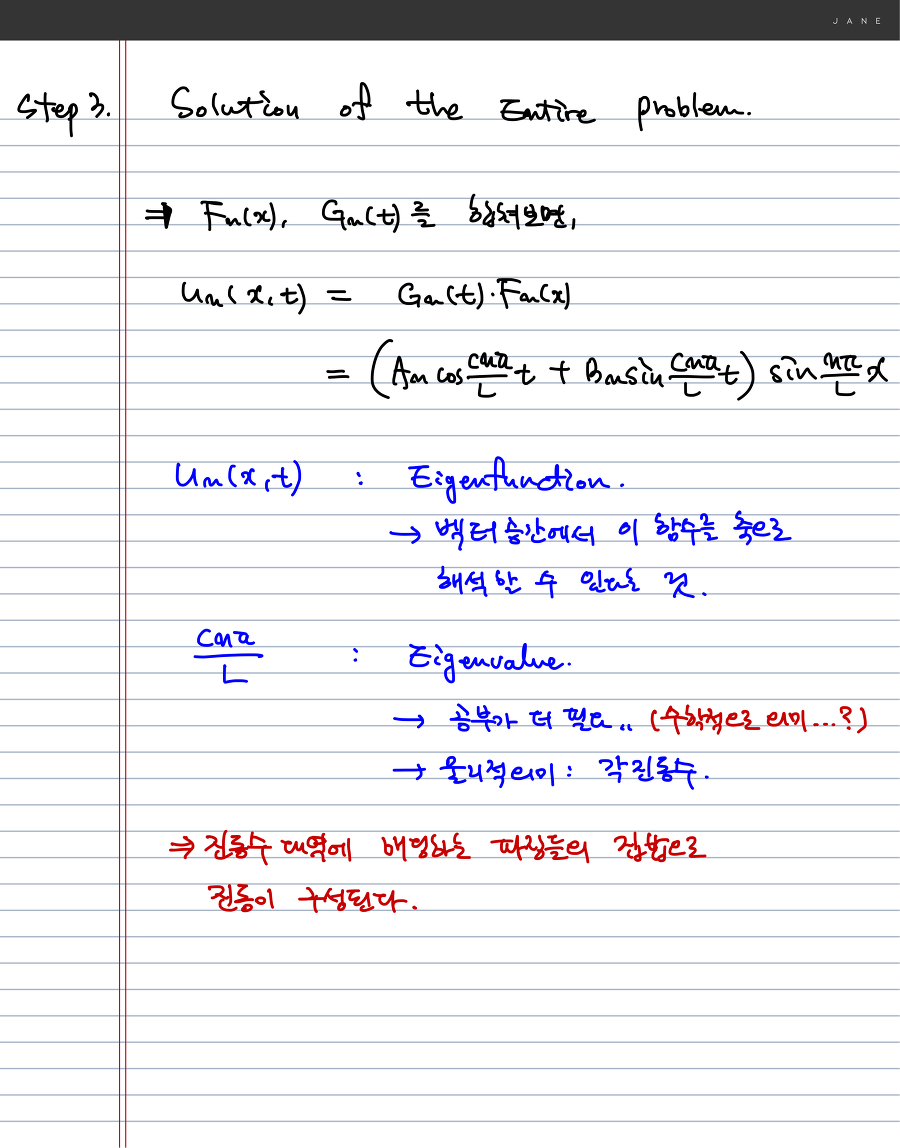 JANE
Step 3. Solution of the Entire problem.
⇒ Fn(x), Gn(t)를 합쳐보면,
un(x,t) = Gn(t)·Fn(x)
= (An cos cnπ/L t + Bn sin cnπ/L t) sin nπ/L x
un(x,t) : Eigenfunction.
→ 벡터 공간에서 이 함수를 축으로
해석할 수 있다는 것.
cnπ/L : Eigenvalue.
→ 공부가 더 필요.. (수학적으로 의미...?)
→ 물리적의미 : 각진동수.
⇒ 진동수 대역에 해당하는 파장들의 집합으로
진동이 구성된다.